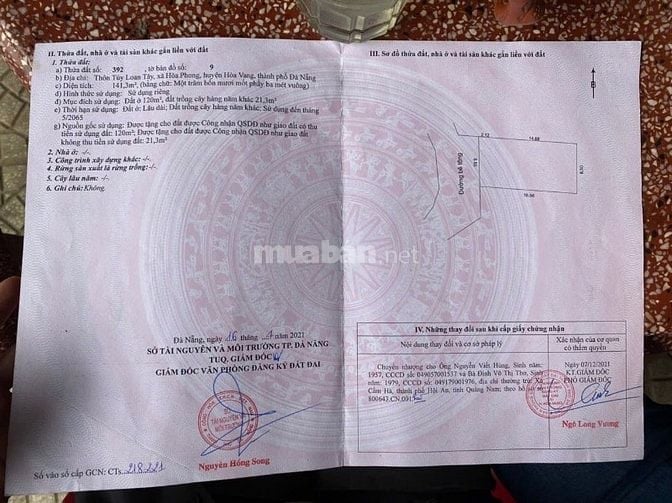 II. Thửa đất, nhà ở và tài sản khác gắn liền với đất
1. Thửa đất:
a) Thửa đất số: 392 , tờ bản đồ số: 9
b) Địa chỉ: Thôn Túy Loan Tây, xã Hòa Phong, huyện Hòa Vang, thành phố Đà Nẵng
c) Diện tích: 141,3m², (bằng chữ: Một trăm bốn mươi mốt phẩy ba mét vuông)
d) Hình thức sử dụng: Sử dụng riêng
đ) Mục đích sử dụng: Đất ở 120m², đất trồng cây hàng năm khác 21,3m²
e) Thời hạn sử dụng: Đất ở: Lâu dài; Đất trồng cây hàng năm khác: Sử dụng đến tháng
5/2065
g) Nguồn gốc sử dụng: Được tặng cho đất được Công nhận QSDĐ như giao đất có thu
tiền sử dụng đất: 120m²; Được tặng cho đất được Công nhận QSDĐ như giao đất
không thu tiền sử dụng đất: 21,3m²
2. Nhà ở: -/-.
3. Công trình xây dựng khác: -/-.
4. Rừng sản xuất là rừng trồng: -/-.
5. Cây lâu năm: -/-.
6. Ghi chú: Không.
Đà Nẵng, ngày 16 tháng năm 2021
SỞ TÀI NGUYÊN VÀ MÔI TRƯỜNG TP. ĐÀ NẴNG
TUQ. GIÁM ĐỐC
GIÁM ĐỐC VĂN PHÒNG ĐĂNG KÝ ĐẤT ĐAI
SỞ
TÀI NGUYÊN VÀ
MÔI TRƯỜNG
Nguyễn Hồng Song
Số vào sổ cấp GCN: CTs 218221
III. Sơ đồ thửa đất, nhà ở và tài sản khác gắn liền với đất
B
2.12
14.88
Đường bê tông
8.50
16.96
muaban.net
IV. Những thay đổi sau khi cấp giấy chứng nhận
Nội dung thay đổi và cơ sở pháp lý
Xác nhận của cơ quan
có thẩm quyền
Chuyển nhượng cho Ông Nguyễn Viết Hùng, Sinh năm:
1957, CCCD số: 049057001537 và Bà Đinh Võ Thị Thơ, Sinh
năm: 1979, CCCD số: 049179001976, địa chỉ thường trú: Xã
Cẩm Hà, thành phố Hội An, tỉnh Quảng Nam; theo hồ sơ số
800643.CN.001
Ngày 07/12/2021
KT.GIÁM ĐỐC
PHÓ GIÁM ĐỐC
Ngô Long Vương